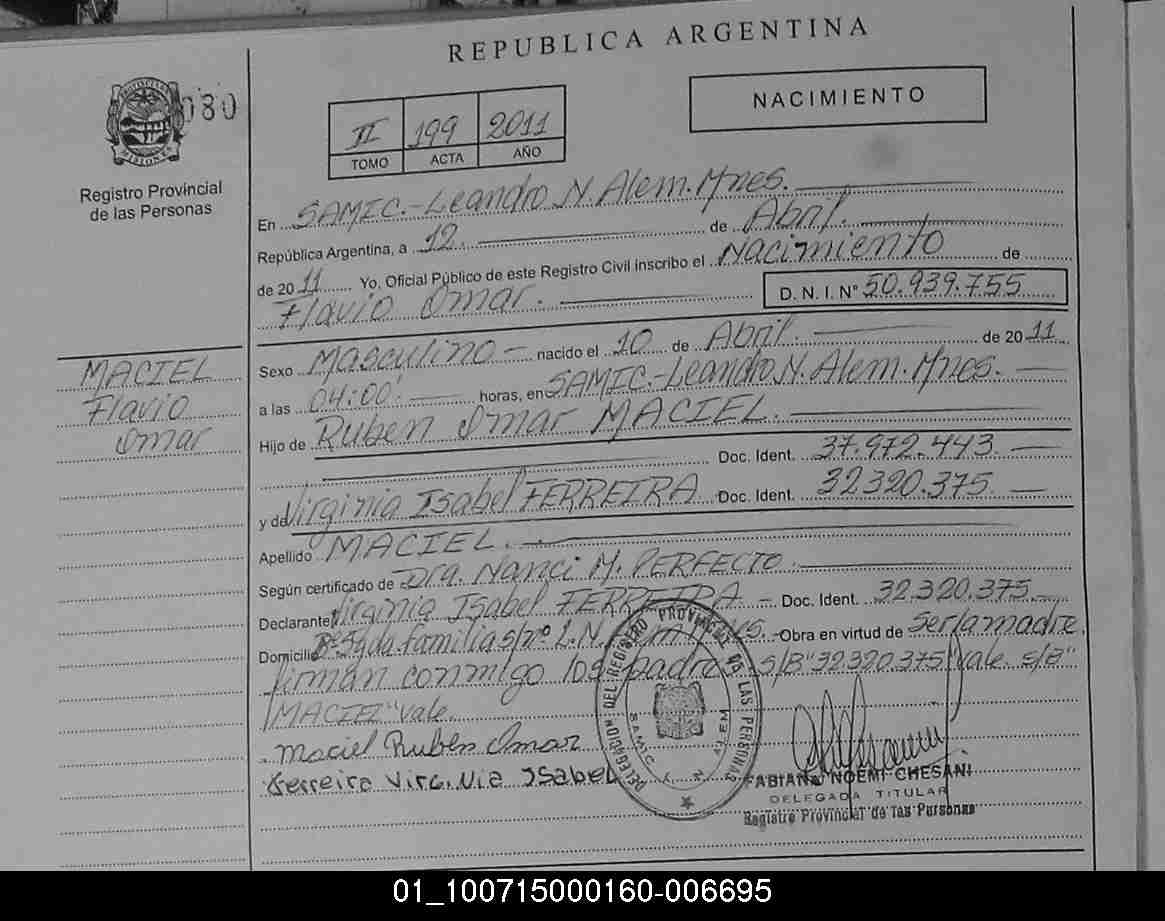 REPUBLICA ARGENTINA
080
NACIMIENTO
II 199 2011
TOMO ACTA AÑO
PROVINCIA DE MISIONES
Registro Provincial
de las Personas
En SAMIC.-Leandro N. Alem. Mnes.
República Argentina, a 12. de Abril.
de 2011 Yo, Oficial Público de este Registro Civil inscribo el Nacimiento de
Flavio Omar. D. N. I. Nº 50.939.755
MACIEL
Flavio
Omar
Sexo Masculino - nacido el 10 de Abril. de 2011
a las 04:00' horas, en SAMIC.-Leandro N. Alem. Mnes.
Hijo de Ruben Omar MACIEL.
Doc. Ident. 37.972.443.
y de Virginia Isabel FERREIRA Doc. Ident. 32320.375.
Apellido MACIEL.
Según certificado de Dra. Nanci M. PERFECTO.
Declarante Virginia Isabel FERREIRA - Doc. Ident. 32.320.375.
Domicilio Bº Sgda familia s/nº L.N. Alem Mnes. - Obra en virtud de Ser la madre.
firman conmigo los padres. s/B "32.320.375" vale. s/B"
MACIEL" vale.
Maciel Ruben Omar
Ferreira Virginia Isabel
DELEGACION DEL REGISTRO PROVINCIAL DE LAS PERSONAS
SAMIC L. N. ALEM
FABIANA NOEMI CHESANI
DELEGADA TITULAR
Registro Provincial de las Personas
01_100715000160-006695